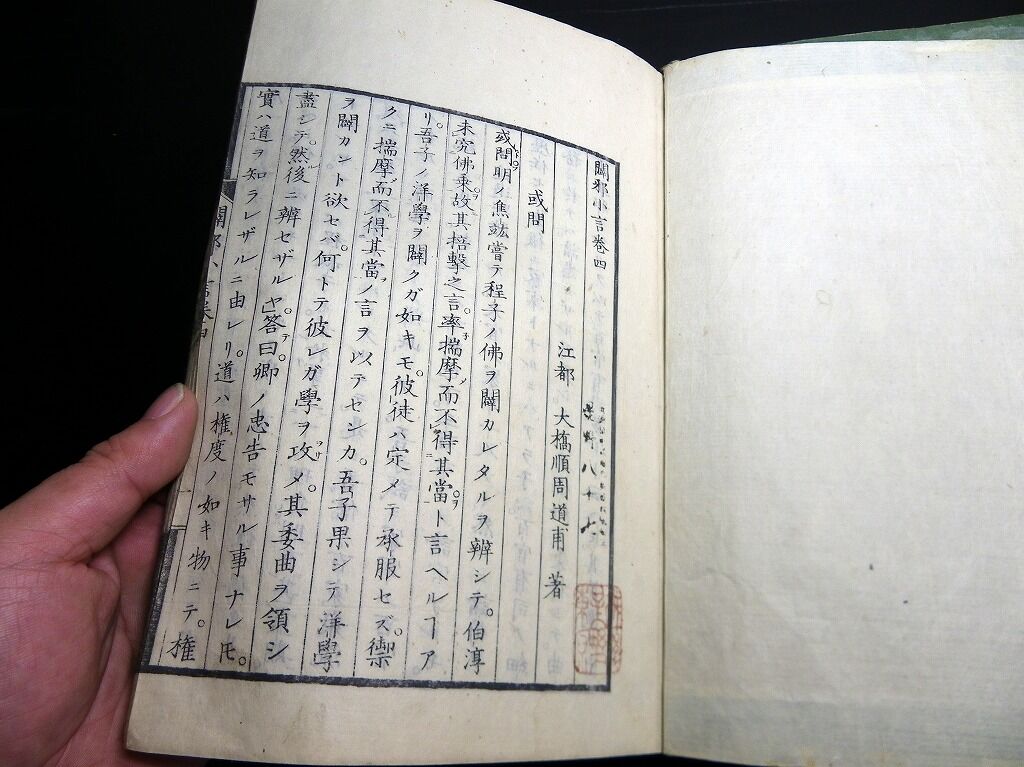 闢邪小言巻四
江都 大橋順周道甫 著
或問
或問。明ノ焦竑嘗テ程子ノ佛ヲ闢カレタルヲ辨シテ。伯淳
未究佛乗。故其掊擊之言。率揣摩而不得其當。ト言ヘルヿア
リ。吾子ノ洋學ヲ闢クガ如キモ。彼徒ハ定メテ承服セズ。禦
クニ揣摩而不得其當ノ言ヲ以テセンカ。吾子果シテ洋學
ヲ闢カント欲セバ。何トテ彼レガ學ヲ攻メ。其委曲ヲ領シ
盡シテ。然後ニ辨セザルヤ。答曰。卿ノ忠告モサル事ナレ𪜈。
實ハ道ヲ知ラレザルニ由レリ。道ハ権度ノ如キ物ニテ。権